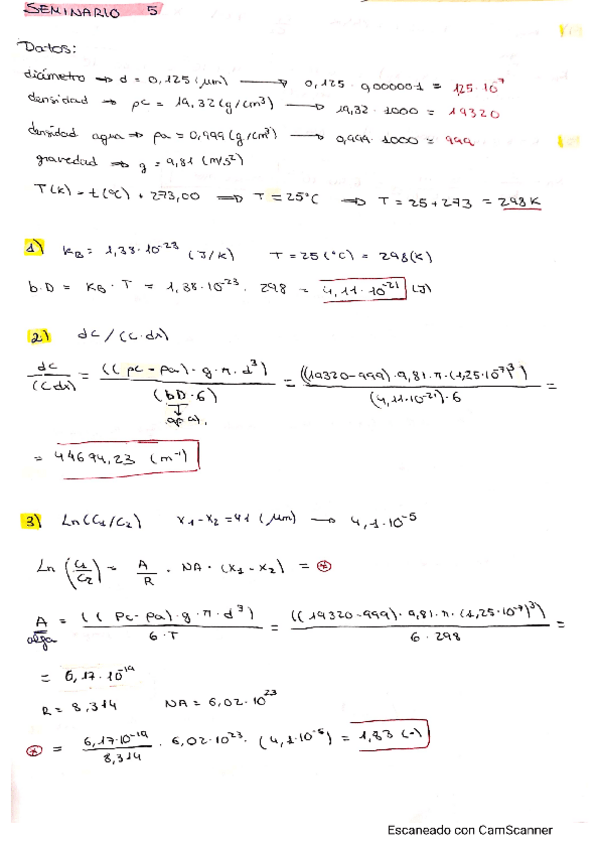 SEMINARIO 5
Datos:
diámetro → d = 0,125 (μm) → 0,125 · 0,000001 = 125·10⁻⁷
densidad → ρc = 19,32 (g/cm³) → 19,32 · 1000 = 19320
densidad agua → ρa = 0,999 (g/cm³) → 0,999 · 1000 = 999
gravedad → g = 9,81 (m/s²)
T(k) = t(ºC) + 273,00 ⇒ T = 25ºC ⇒ T = 25 + 273 = 298 K
1) KB = 1,38·10⁻²³ (J/K) T = 25 (ºC) = 298 (K)
b·D = KB · T = 1,38·10⁻²³ · 298 = 4,11·10⁻²¹ (J)
2) dc / (c·dx)
dc/(c dx) = ((ρc - ρa) · g · π · d³) / (bD · 6) = ((19320 - 999) · 9,81 · π · (1,25·10⁻⁷)³) / ((4,11·10⁻²¹) · 6) =
= 44694,23 (m⁻¹)
3) Ln(C1/C2) x1 - x2 = 41 (μm) → 4,1·10⁻⁵
Ln (C1/C2) = A/R · NA · (x1 - x2) = *
A = ((ρc - ρa) · g · π · d³) / (6 · T) = ((19320 - 999) · 9,81 · π · (1,25·10⁻⁷)³) / (6 · 298) =
alga
= 6,17·10⁻¹⁹
R = 8,314 NA = 6,02·10²³
* = 6,17·10⁻¹⁹ / 8,314 · 6,02·10²³ · (4,1·10⁻⁵) = 1,83 (-)
Escaneado con CamScanner